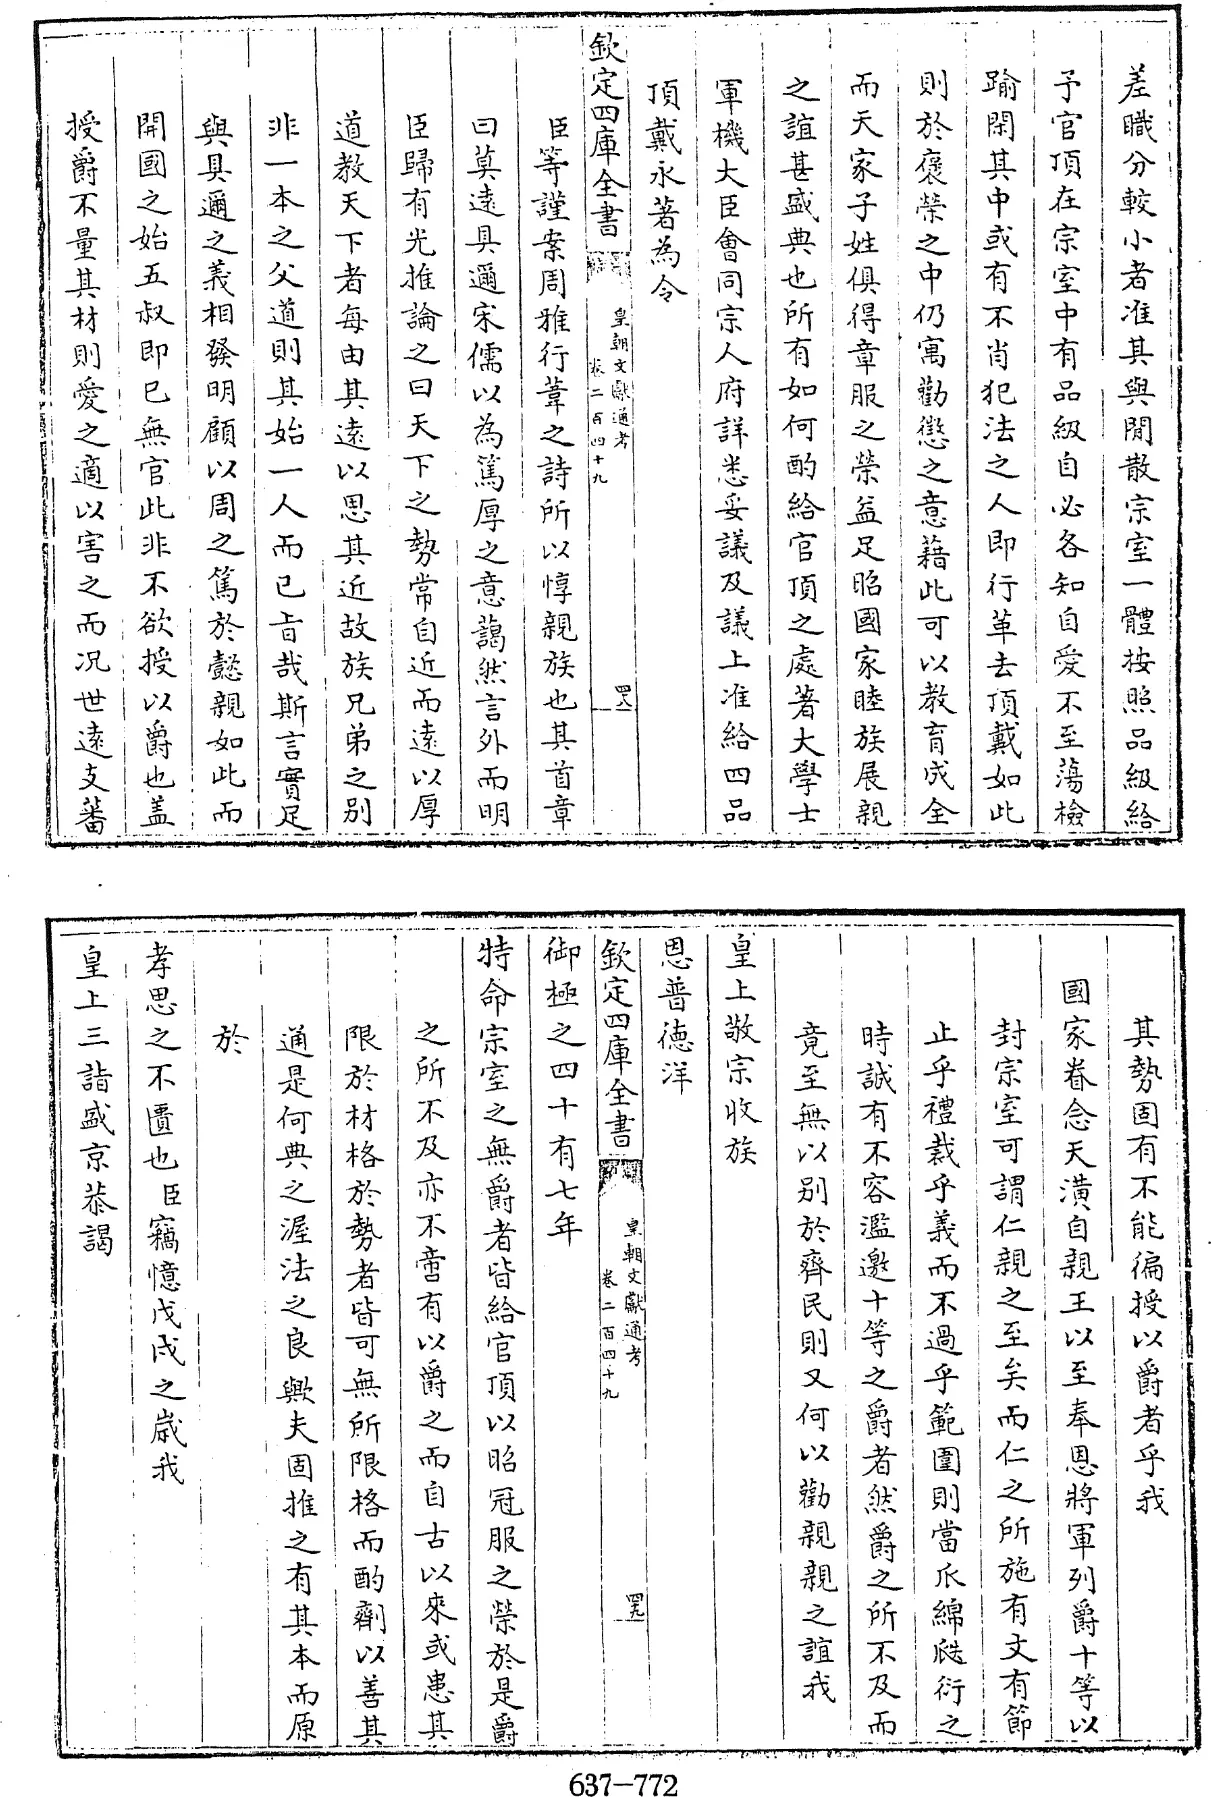 差職分較小者准其與閒散宗室一體按照品級給
予官頂在宗室中有品級自必各知自愛不至蕩檢
踰閑其中或有不肖犯法之人即行革去頂戴如此
則於褒榮之中仍寓勸懲之意藉此可以教育成全
而天家子姓俱得章服之榮益足昭國家睦族展親
之誼甚盛典也所有如何酌給官頂之處著大學士
軍機大臣會同宗人府詳悉妥議及議上准給四品
頂戴永著為令
欽定四庫全書
皇朝文獻通考
卷二百四十九
四八
臣等謹案周雅行葦之詩所以惇親族也其首章
曰莫遠具邇宋儒以為篤厚之意藹然言外而明
臣歸有光推論之曰天下之勢常自近而遠以厚
道教天下者每由其遠以思其近故族兄弟之別
非一本之父道則其始一人而已旨哉斯言實足
與具邇之義相發明顧以周之篤於懿親如此而
開國之始五叔即已無官此非不欲授以爵也蓋
授爵不量其材則愛之適以害之而况世遠支蕃
其勢固有不能徧授以爵者乎我
國家眷念天潢自親王以至奉恩將軍列爵十等以
封宗室可謂仁親之至矣而仁之所施有文有節
止乎禮裁乎義而不過乎範圍則當瓜綿瓞衍之
時誠有不容濫邀十等之爵者然爵之所不及而
竟至無以別於齊民則又何以勸親親之誼我
皇上敬宗收族
恩普德洋
欽定四庫全書
皇朝文獻通考
卷二百四十九
四九
御極之四十有七年
特命宗室之無爵者皆給官頂以昭冠服之榮於是爵
之所不及亦不啻有以爵之而自古以來或患其
限於材格於勢者皆可無所限格而酌劑以善其
通是何典之渥法之良歟夫固推之有其本而原
於
孝思之不匱也臣竊憶戊戌之歲我
皇上三詣盛京恭謁
637-772